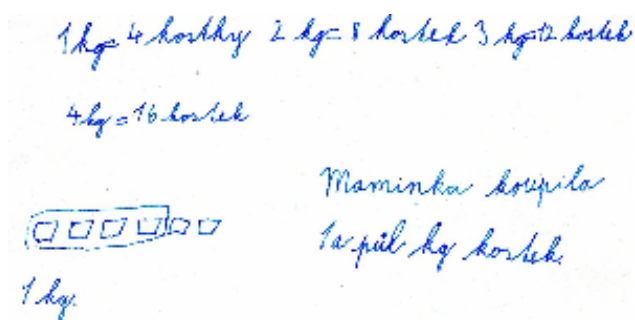 1 kg = 4 kostky 2 kg = 8 kostek 3 kg = 12 kostek
4 kg = 16 kostek
Maminka koupila
1 a půl kg kostek.
1 kg.